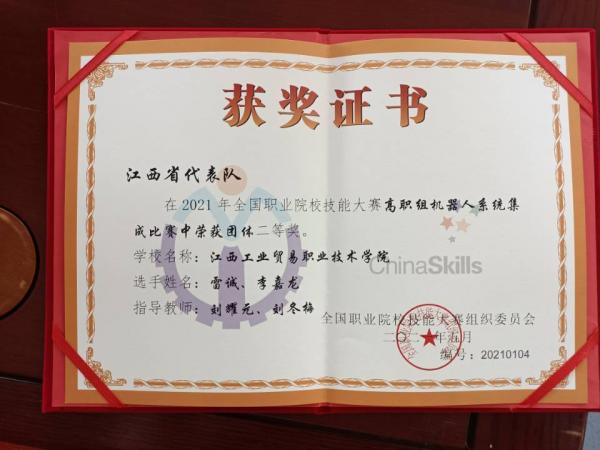 获奖证书
江西省代表队
在2021年全国职业院校技能大赛高职组机器人系统集
成比赛中荣获团体二等奖。
学校名称：江西工业贸易职业技术学院
选手姓名：雷诚、李嘉龙
指导教师：刘耀元、刘冬梅
ChinaSkills
全国职业院校技能大赛组织委员会
编号：20210104